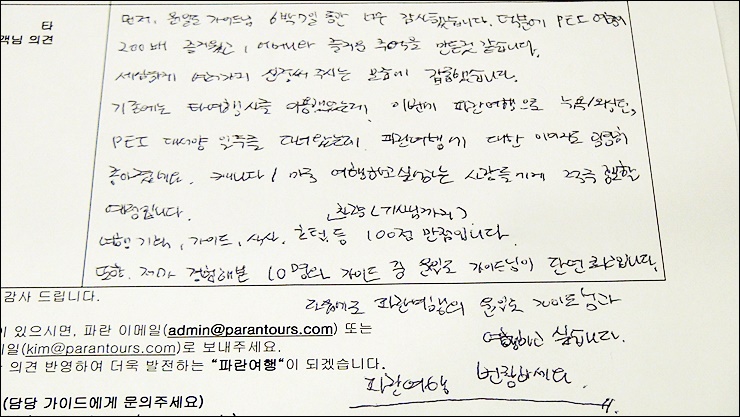 타
객님 의견
먼저, 윤일도 가이드님 6박7일 동안 너무 감사했습니다. 덕분에 PEI 여행이
200배 즐거웠고, 어머니와 즐거운 추억을 만든것 같습니다.
세심하게 여러가지 신경써 주시는 모습에 감동했습니다.
기존에는 타여행사를 이용했었는데, 이번에 파란여행으로 뉴욕/워싱턴,
PEI 대서양 일주를 다녀왔는데 파란여행에 대한 이미지도 굉장히
좋아졌네요. 캐나다/미국 여행하고싶어하는 사람들에게 적극 추천할
예정입니다.
차량(기사님까지)
여행 기획, 가이드, 식사, 호텔 등 100점 만점입니다.
또한, 제가 경험해본 10명의 가이드 중 윤일도 가이드님이 단연 최고입니다.
다음에도 파란여행의 윤일도 가이드님과
여행하고 싶습니다.
파란여행 번창하세요.
감사 드립니다.
이 있으시면, 파란 이메일(admin@parantours.com) 또는
일(kim@parantours.com)로 보내주세요.
의견 반영하여 더욱 발전하는 "파란여행"이 되겠습니다.
(담당 가이드에게 문의주세요)